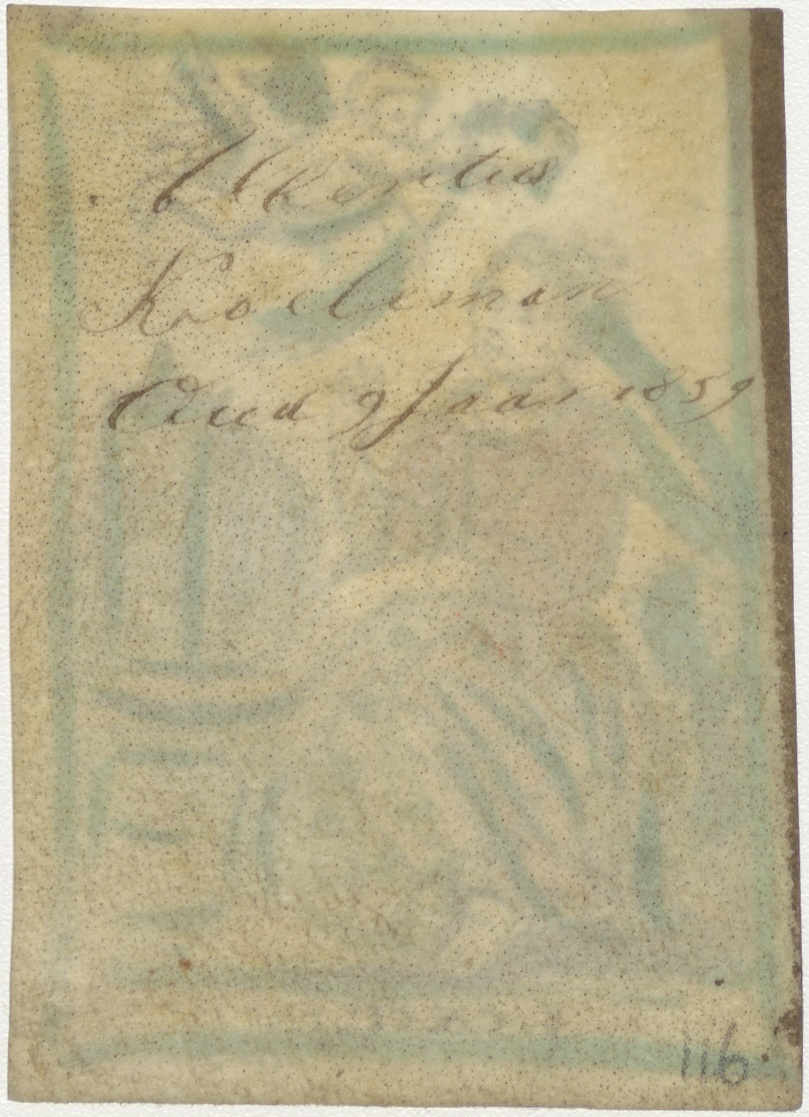 Albertus
Koeleman
Oud 9 Jaar 1859
116